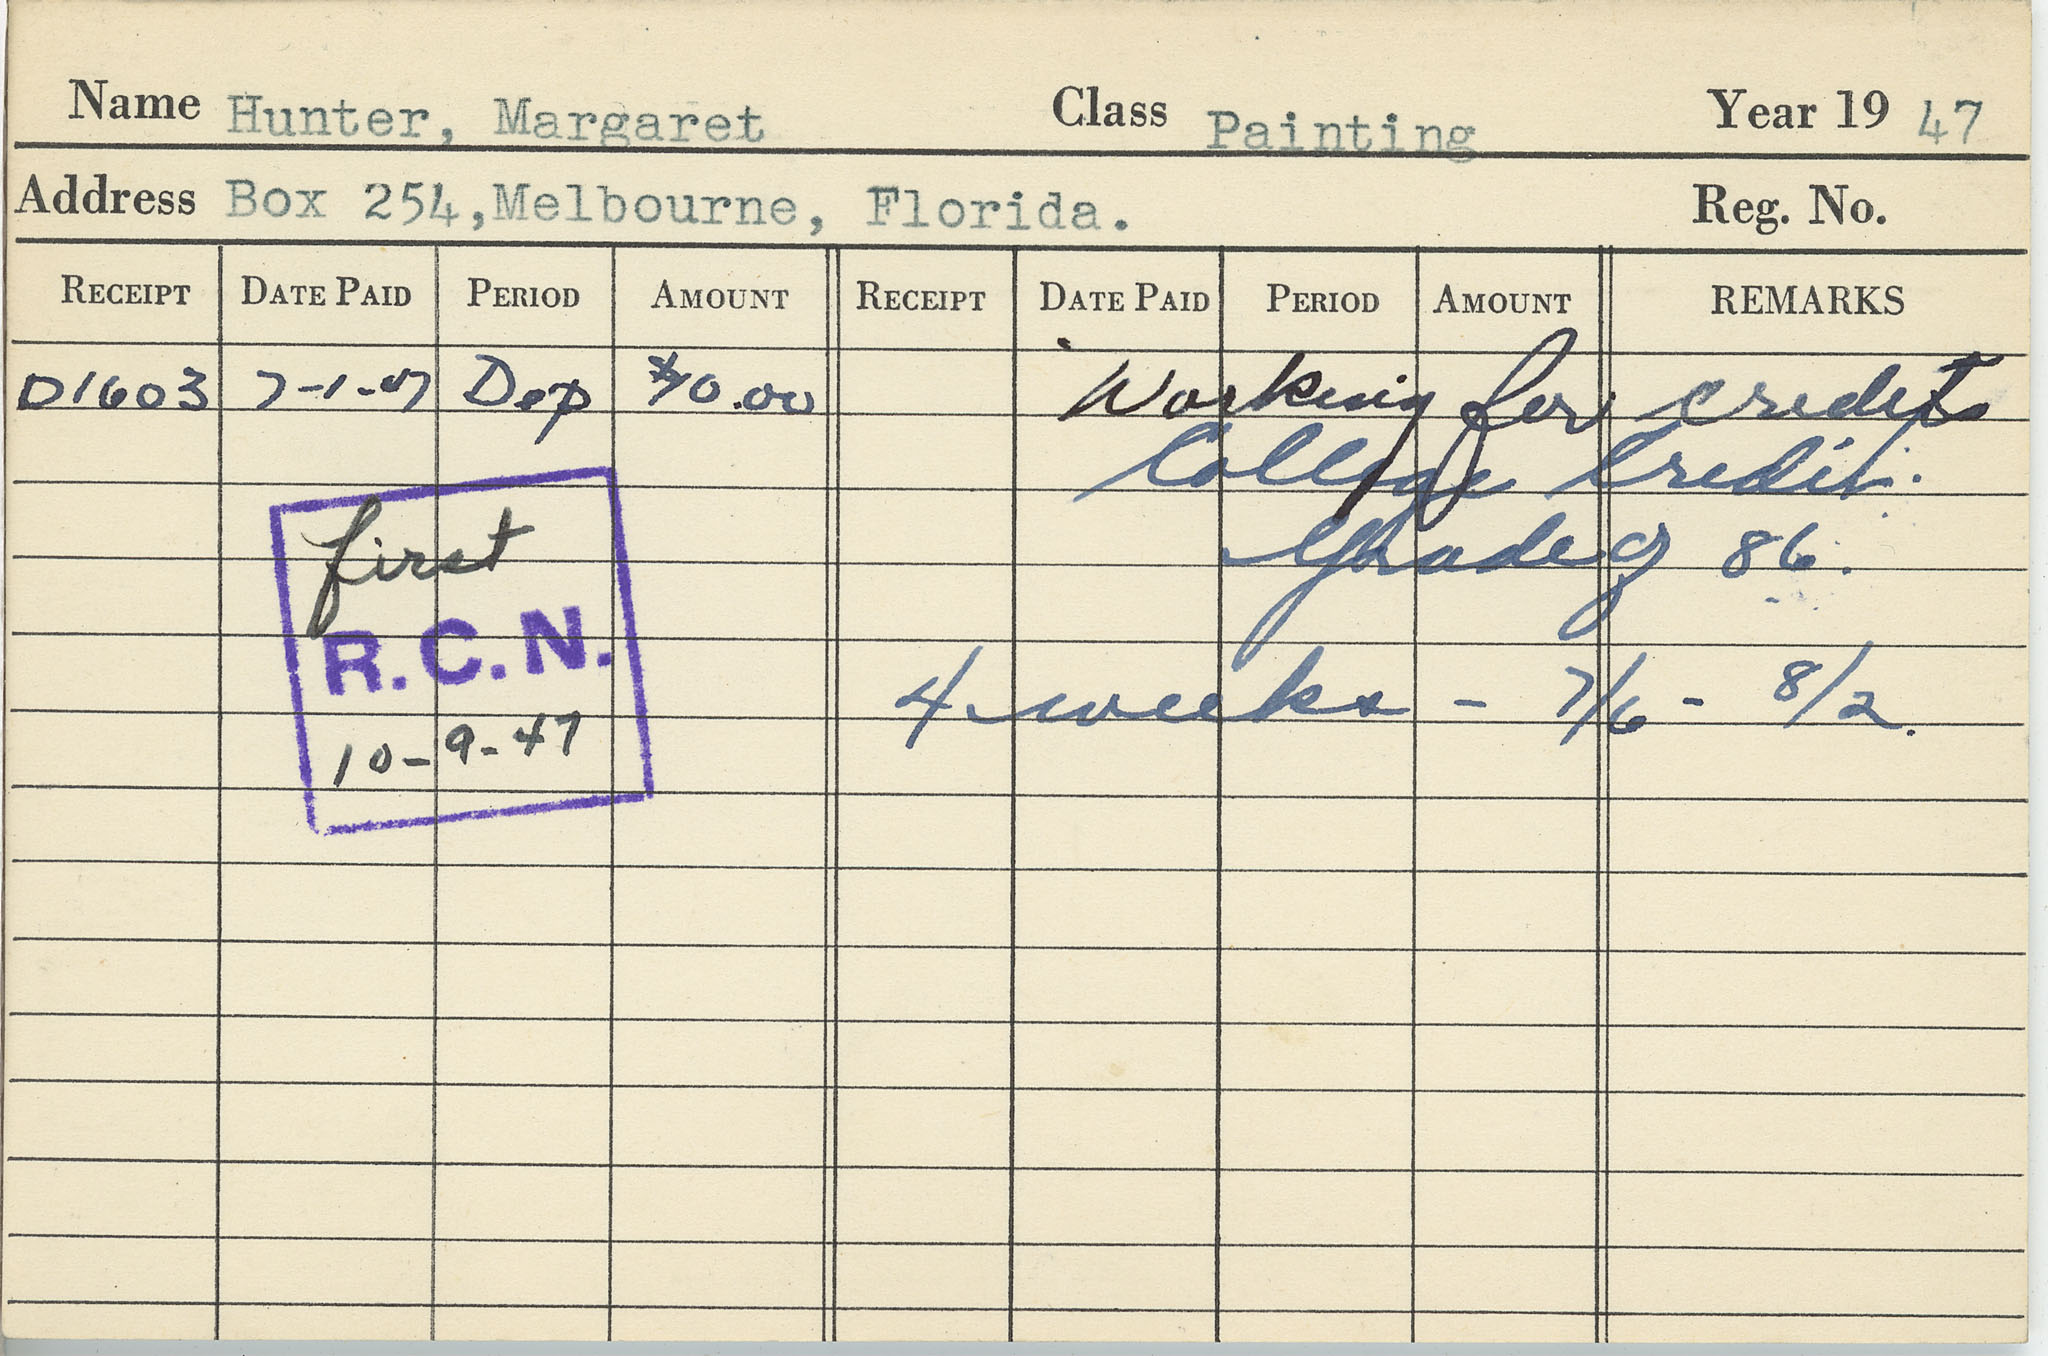 Name Hunter, Margaret Class Painting Year 19 47
Address Box 254, Melbourne, Florida. Reg. No.
RECEIPT DATE PAID PERIOD AMOUNT RECEIPT DATE PAID PERIOD AMOUNT REMARKS
D1603 7-1-47 Dep $10.00 Working for credits
College Credit.
Grade of 86.
first
R.C.N.
10-9-47
4 weeks - 7/6 - 8/2.